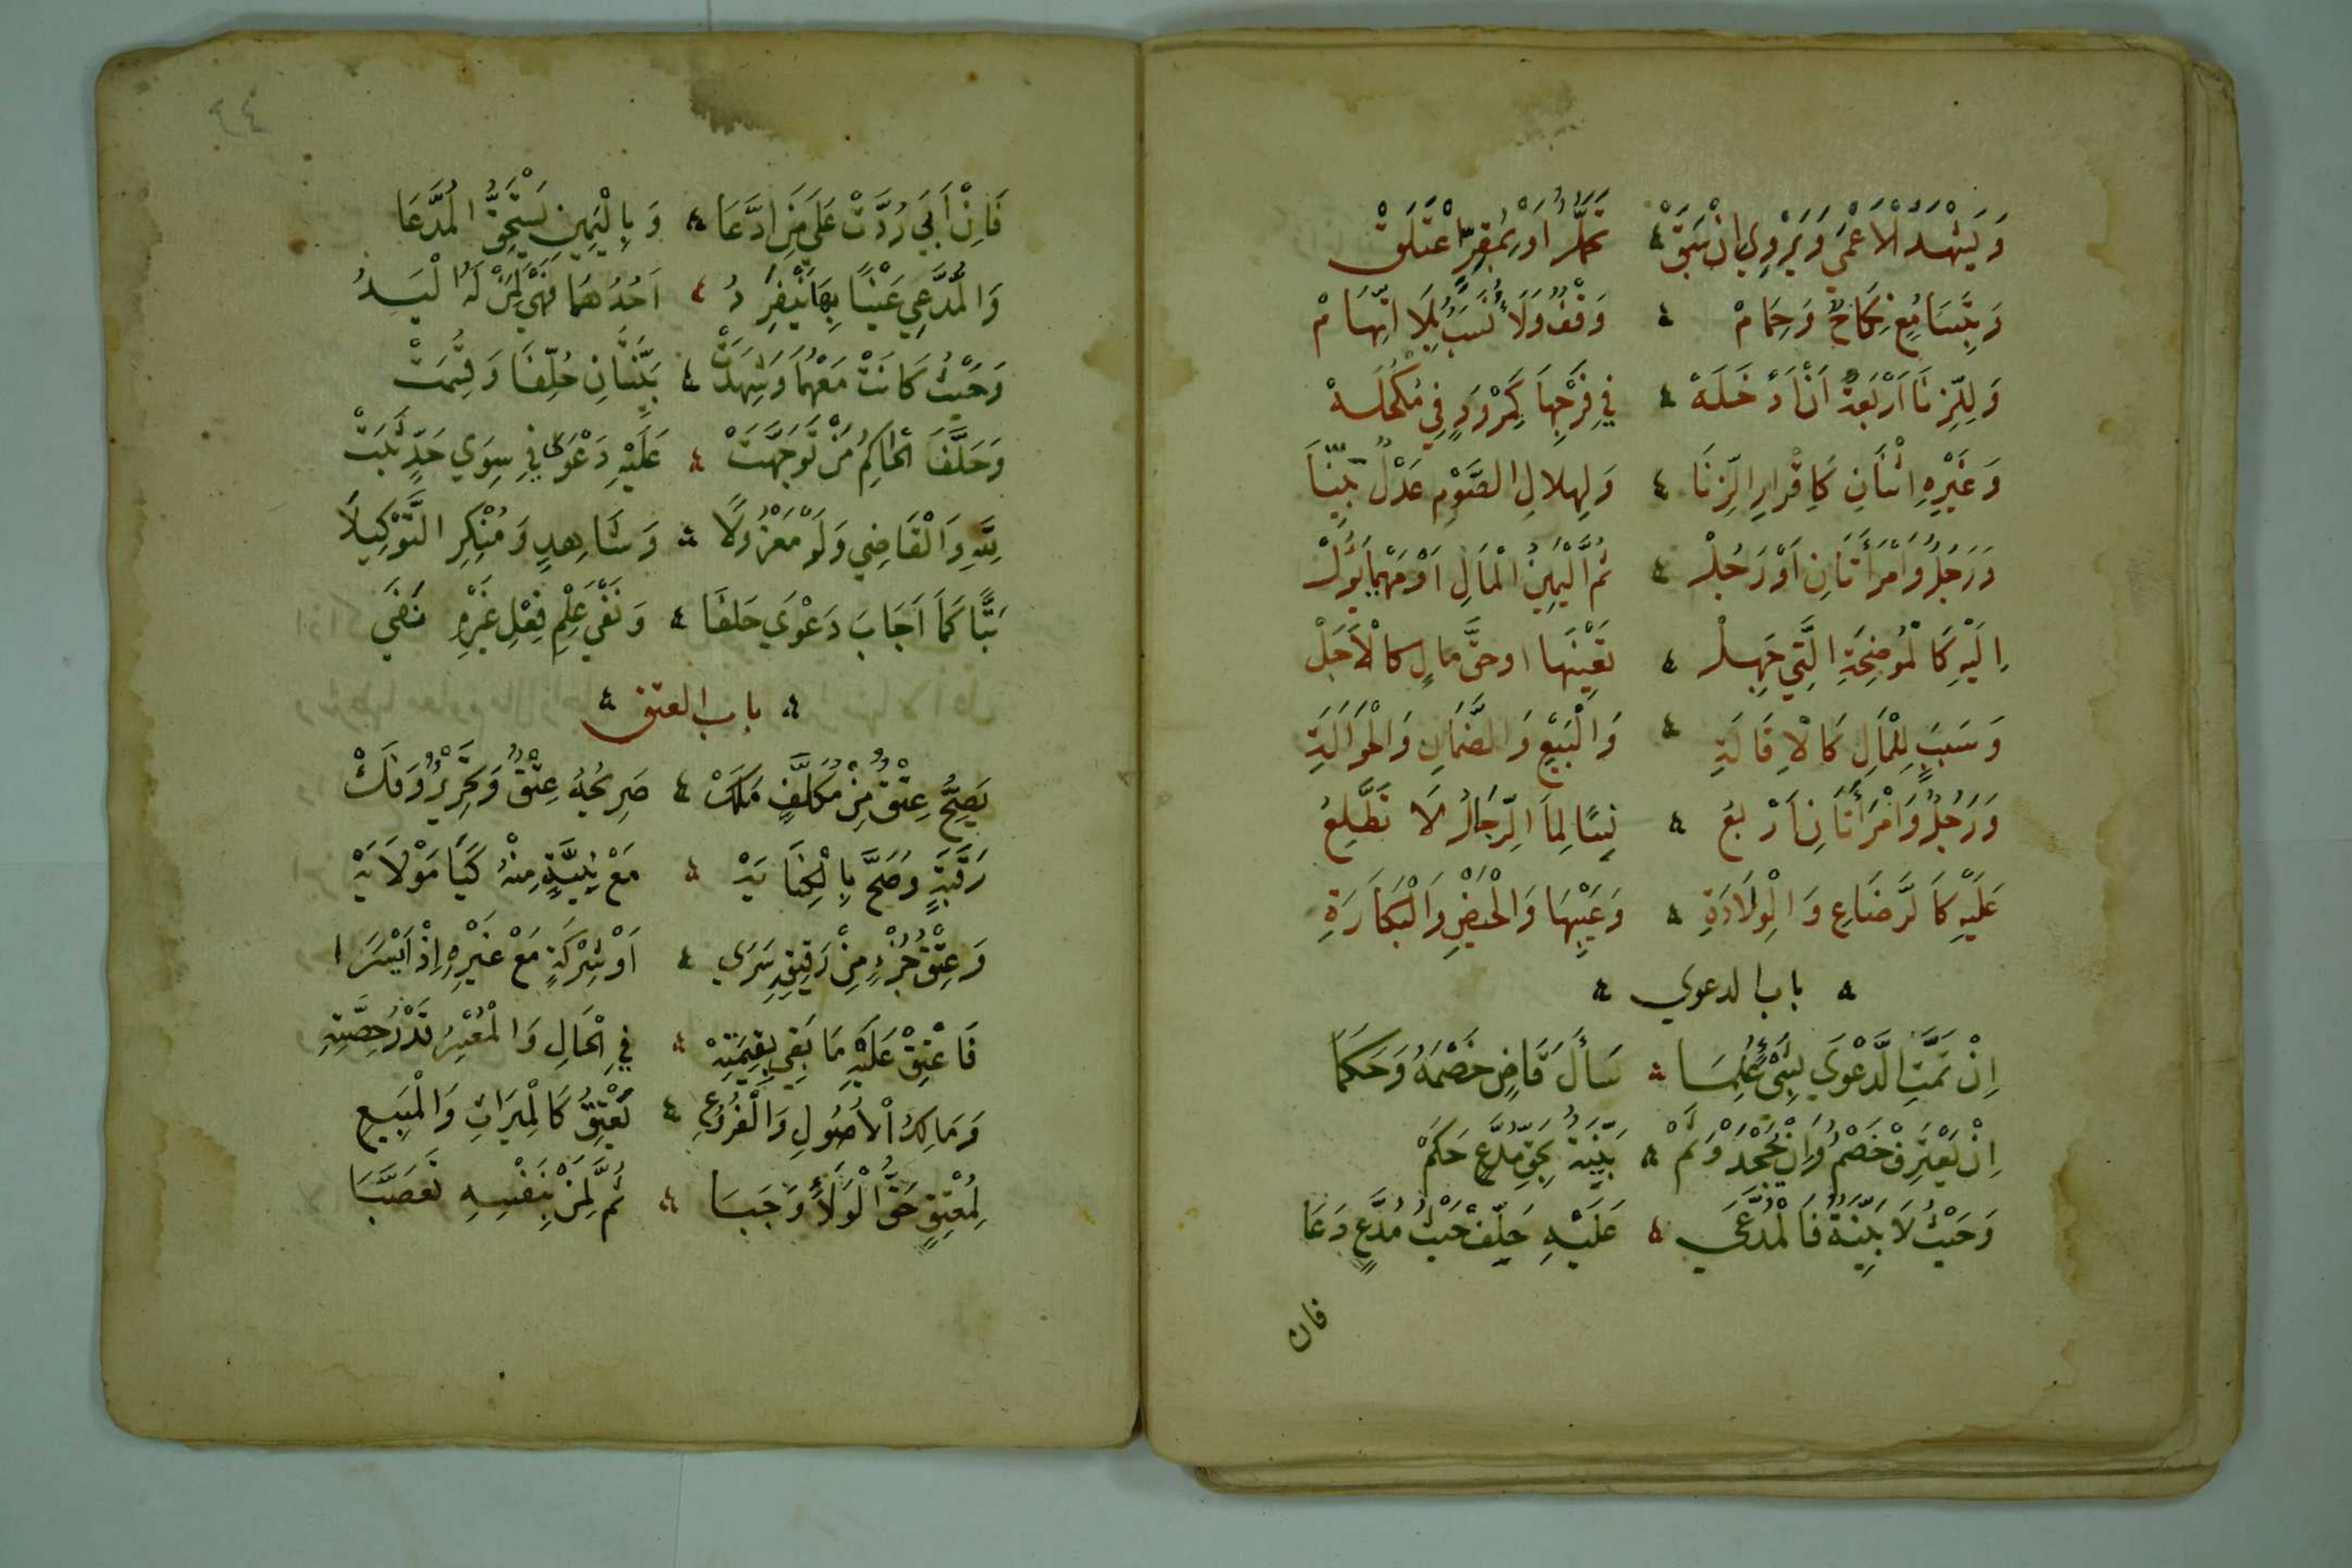 وَيَشْهَدُ الْأَعْمَى وَيَرْوِي إِنْ سَبَقْ ۞ تَحَمُّلٌ أَوْ بِمُقِرٍّ اعْتَلَقْ
وَبِتَسَامُعٍ نِكَاحٌ وَحِمَامْ ۞ وَقْفٌ وَلَاءٌ نَسَبٌ بِلَا اتِّهَامْ
وَلِلزِّنَا أَرْبَعَةٌ أَنْ أَدْخَلَهْ ۞ فِي فَرْجِهَا كَمِرْوَدٍ فِي مُكْحُلَهْ
وَغَيْرِهِ اثْنَانِ كَإِقْرَارِ الزِّنَا ۞ وَلِهِلَالِ الصَّوْمِ عَدْلٌ بَيِّنَا
وَرَجُلٌ وَامْرَأَتَانِ أَوْ رَجُلْ ۞ ثُمَّ الْيَمِينُ الْمَالِ أَوْ مَهْمَا يَؤُلْ
إِلَيْهِ كَالْمُوضِحَةِ الَّتِي جُهِلْ ۞ تَعْيِينُهَا اوحق مالٍ كالْأَجَلْ
وَسَبَبٍ لِلْمَالِ كَالْإِقَالَةِ ۞ وَالْبَيْعِ وَالضَّمَانِ وَالْحَوَالَةِ
وَرَجُلٌ وَامْرَأَتَانِ أَرْبَعُ ۞ نِسًا لِمَا الرِّجَالُ لَا تَطَّلِعُ
عَلَيْهِ كَالرَّضَاعِ وَالْوِلَادَةِ ۞ وَعَيْبِهَا وَالْحَيْضِ وَالْبَكَارَةِ
باب الدعوي
إِنْ تَمَّتِ الدَّعْوَى بِشَيْءٍ عُلِمَا ۞ سَأَلَ قَاضٍ خَصْمَهُ وَحَكَمَا
إِنْ يَعْتَرِفْ خَصْمٌ وَإِنْ يَجْحَدْ وَثَمْ ۞ بَيِّنَةٌ بِحَقِّ مُدَّعٍ حَكَمْ
وَحَيْثُ لَا بَيِّنَةٌ فَالْمُدَّعَى ۞ عَلَيْهِ حَلِّفْ حَيْثُ مُدَّعٍ دَعَا
فان
فَإِنْ أَبَى رُدَّتْ عَلَى مَنِ ادَّعَا ۞ وَبِالْيَمِينِ يَسْتَحِقُّ الْمُدَّعَا
وَالْمُدَّعِي عَيْنًا بِهَا يَنْفَرِدُ ۞ أَحَدُهُمَا فَهْيَ لِمَنْ لَهُ الْيَدُ
وَحَيْثُ كَانَتْ مَعْهُمَا وَشَهِدَتْ ۞ بَيِّنَتَانِ حُلِّفَا وَقُسِمَتْ
وَحَلَّفَ الْحَاكِمُ مَنْ تَوَجَّهَتْ ۞ عَلَيْهِ دَعْوَى فِي سِوَي حَدٍّ ثَبَتْ
لِلَّهِ وَالْقَاضِي وَلَوْ مَعْزُولَا ۞ وَشَاهِدٍ وَمُنْكِرِ التَّوْكِيلَا
بَتًّا كَمَا أَجَابَ دَعْوَي حَلَفَا ۞ وَنَفْيَ عِلْمِ فِعْلِ غَيْرِهِ نَفَي
باب العتق
يَصِحُّ عِتْقٌ مِنْ مُكَلَّفٍ مَلَكْ ۞ صَرِيحُهُ عِتْقٌ وَتَحْرِيرٌ وَفَكْ
رَقَبَةٍ وَصَحَّ بِالْكِنَايَهْ ۞ مَعْ نِيَّةٍ مِنْهُ كَيَا مَوْلَايَهْ
وَعِتْقُ جُزْءٍ مِنْ رَقِيقِهِ سَرَى ۞ أَوْ شِرْكَةٍ مَعْ غَيْرِهِ إِذْ أَيْسَرَا
فَاعْتِقْ عَلَيْهِ مَا بَقِي بِقِيمَتِهْ ۞ فِي الْحَالِ وَالْمُعْسِرُ قَدْرُ حِصَّتِهِ
وَمَالِكُ الْأُصُولِ وَالْفُرُوعِ ۞ يُعْتِقُ كَالْمِيرَاثِ وَالْمَبِيعِ
لِمُعْتِقٍ حَقُّ الْوَلَاءِ وَجَبَا ۞ ثُمَّ لِمَنْ بِنَفْسِهِ تَعَصَّبَا